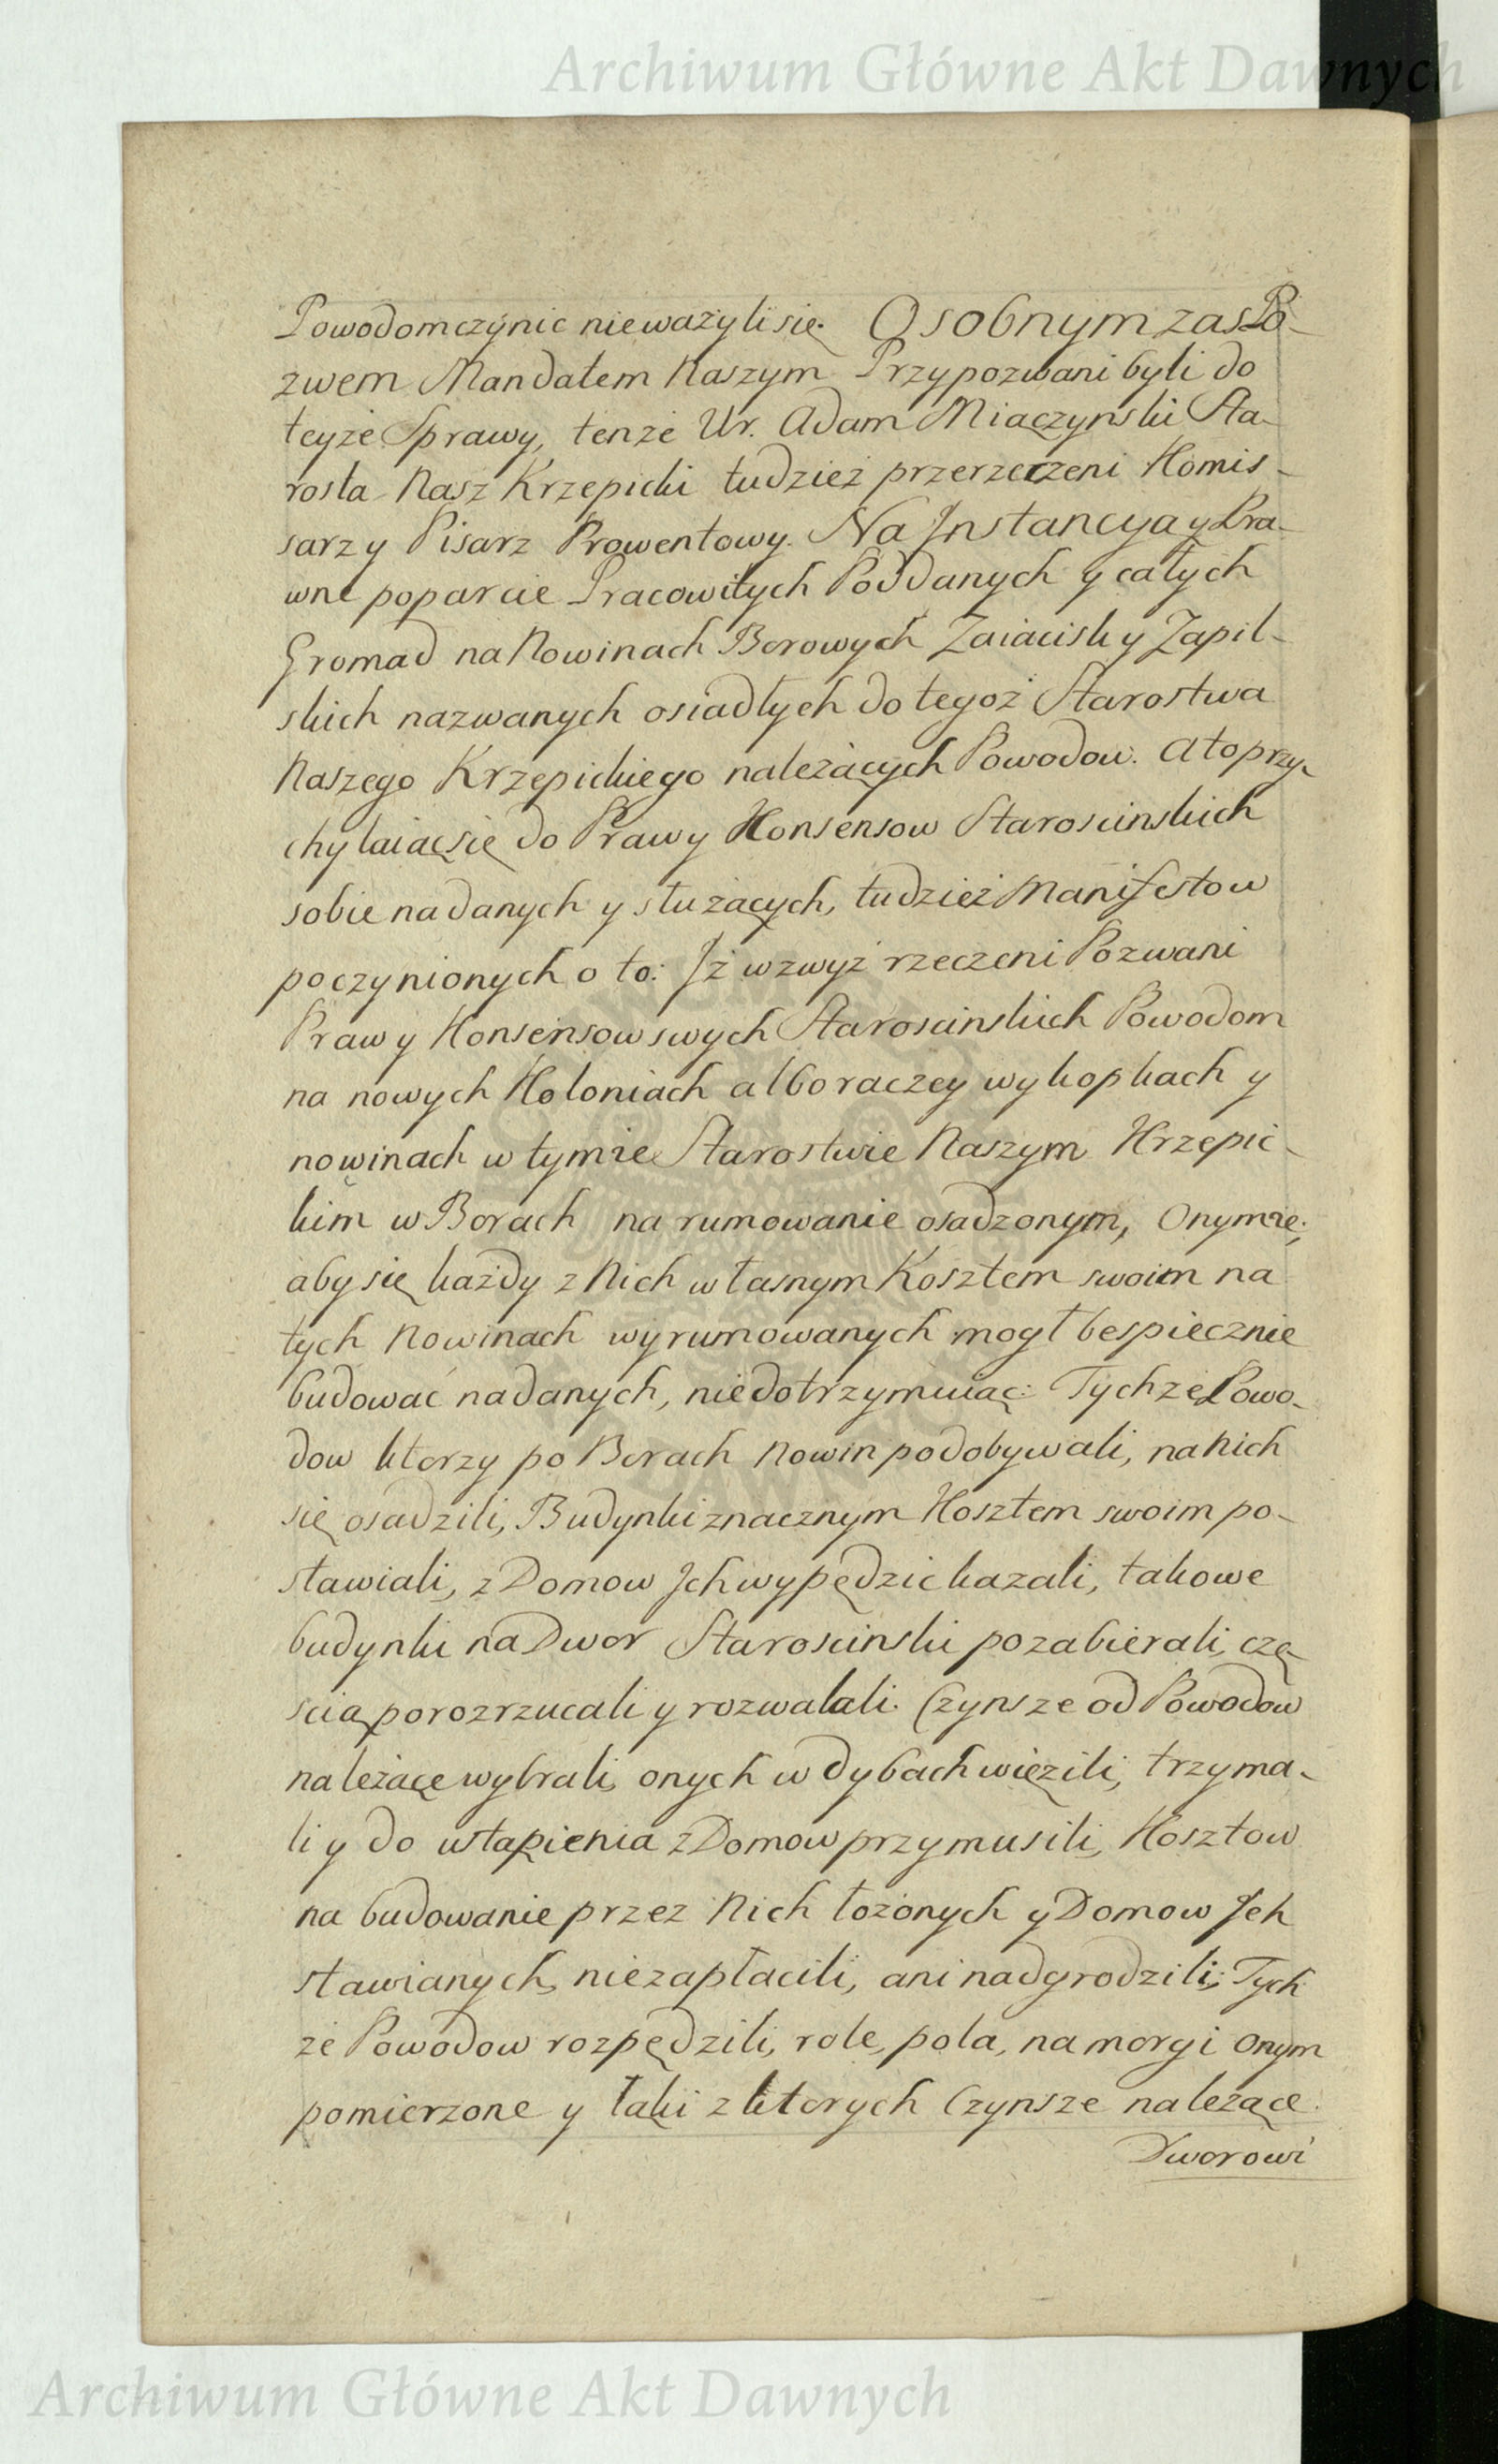 Archiwum Główne Akt Dawnych
Powodom czynic nieważyli się. Osobnym zas Po-
zwem Mandatem Naszym Przypozwani byli do
teyże Sprawy, tenże Ur. Adam Miączynski Sta-
rosta Nasz Krzepicki tudzież przerzeczeni Komis-
sarz y Pisarz Prowentowy. Na Jnstancyą y Pra-
wne poparcie Pracowitych Poddanych y całych
Gromad na Nowinach Borowych Zaiącisk y Zapil-
skich nazwanych osiadłych do tegoż Starostwa
Naszego Krzepickiego należących Powodow. A to przy-
chylaiąc się do Praw y Konsensow Starościnskich
sobie nadanych y służących, tudzież Manifestow
poczynionych o to: Jż wzwyż rzeczeni Pozwani
Praw y Konsensow swych Starościnskich Powodom
na nowych Koloniach albo raczey wykopkach y
nowinach w tymże Starostwie Naszym Krzepic-
kim w Borach na rumowanie osadzonym, Onymże,
aby się każdy z Nich własnym Kosztem swoim na
tych Nowinach wyrumowanych mogł bespiecznie
budować nadanych, niedotrzymuiąc: Tychże Powo-
dow ktorzy po Borach Nowin podobywali, na Nich
się osadzili, Budynki znacznym Kosztem swoim po-
stawiali, z Domow Jch wypędzic kazali, takowe
budynki na Dwor Starościnski pozabierali, czę-
scią porozrzucali y rozwalali. Czynsze od Powodow
należące wybrali, onych w dybach więzili, trzyma-
li y do ustąpienia z Domow przymusili, Kosztow
na budowanie przez Nich łożonych y Domow Jch
stawianych, niezapłacili, ani nadgrodzili; Tych
że Powodow rozpędzili, role, pola, na morgi onym
pomierzone y łąki z ktorych Czynsze należące
Dworowi
Archiwum Główne Akt Dawnych